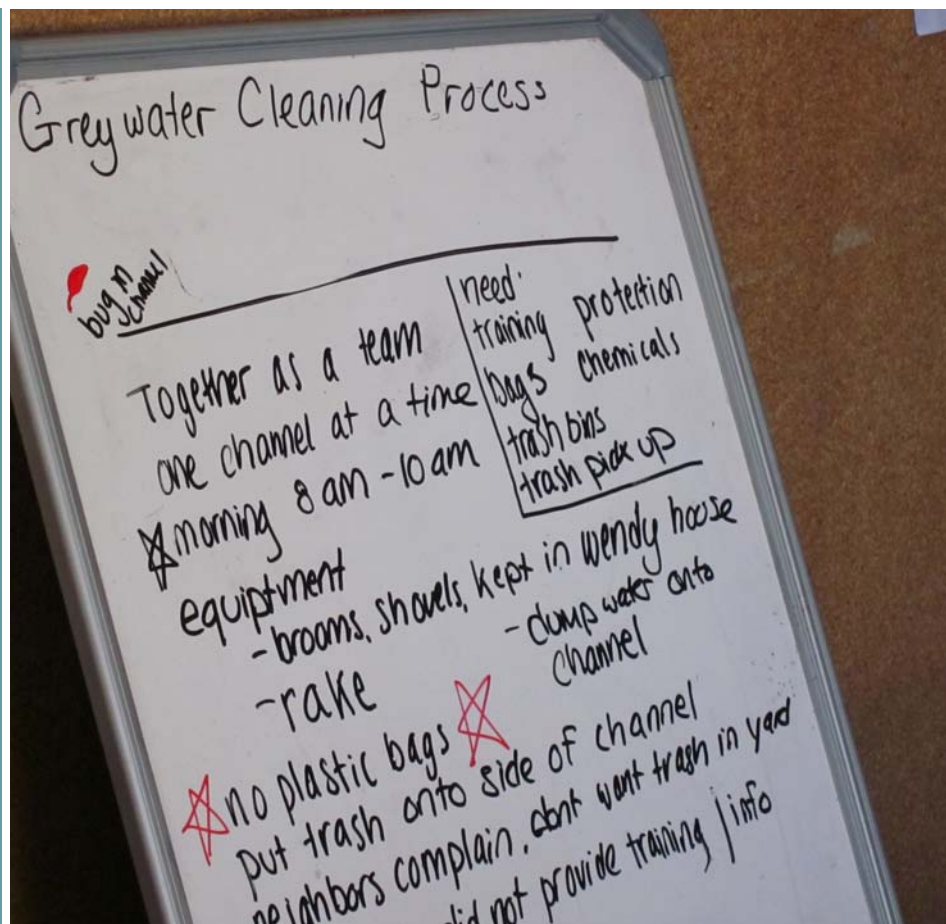 Greywater Cleaning Process
bug in
channel
Together as a team
one channel at a time
morning 8am - 10am
need
training protection
bags chemicals
trash bins
trash pick up
equiptment
- brooms, shovels, kept in wendy house
- rake
- dump water onto
channel
no plastic bags
put trash onto side of channel
neighbors complain, dont want trash in yard
did not provide training / info